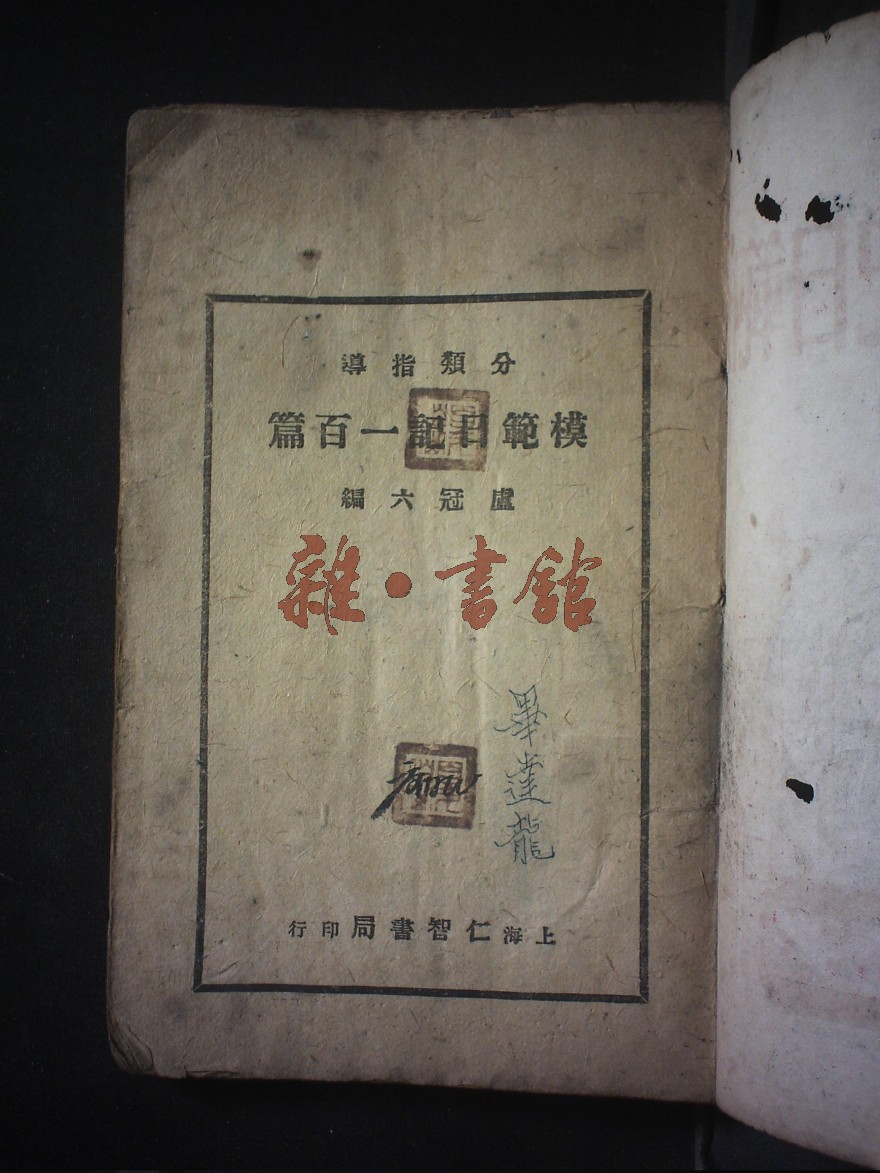 分類指導
模範日記一百篇
盧冠六編
雜·書館
畢達龍
上海仁智書局印行